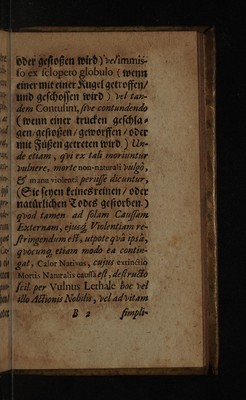 oder geſtoßen wird) vel immiſ-
ſo ex ſclopeto globulo (wenn
einer mit einer Kugel getroffen/
und geſchoſſen wird) vel tan-
dem Contuſum, ſive contundendo
(wenn einer trucken geſchla-
gen/geſtoßen/geworffen/oder
mit Füßen getreten wird.) Un-
de etiam, qui ex tali moriuntur
vulnere, morte non-naturali vulgò,
& manu violentâ periiſſe dicuntur,
(Sie ſeyen keines reinen/oder
natürlichen Todes geſtorben.)
quod tamen ad ſolam Cauſam
Externam, ejusq; Violentiam re-
ſtringendum eſt, utpote quâ ipſâ,
quocunq; etiam modo ea contin-
gat, Calor Nativus, cujus extinctio
Mortis Naturalis cauſa eſt, deſtructo
ſcil. per Vulnus Lethale hoc vel
illo Actionis Nobilis, vel ad vitam
B 2 ſimpli-